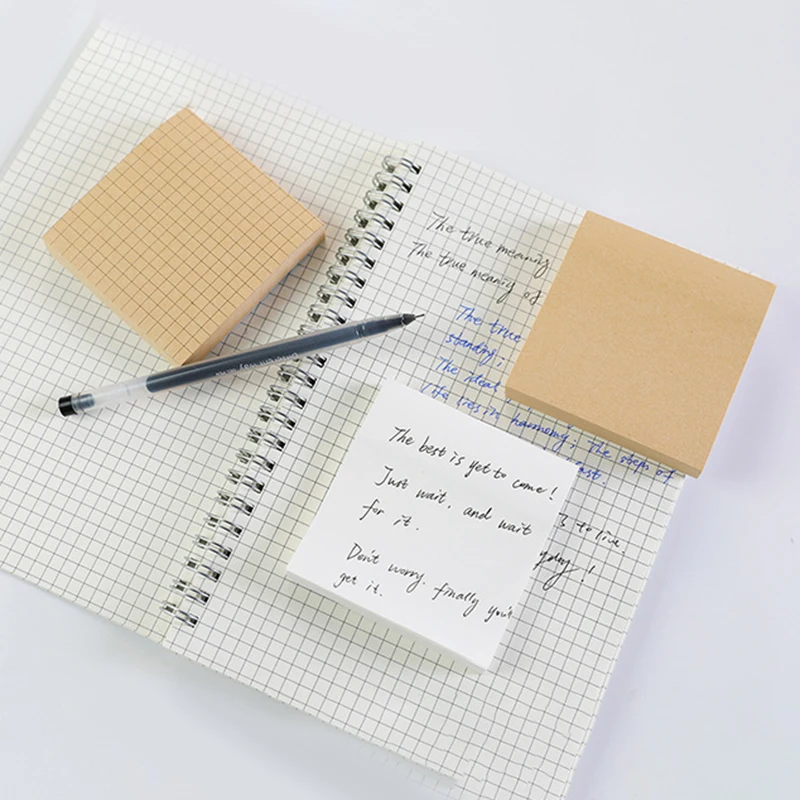 The true meaning
The true meaning of
The true
standing,
The ideal
life lies in harmony; The steps of
east.
The best is yet to come!
Just wait, and wait
for it.
Don't worry, finally you'll
get it.
to live